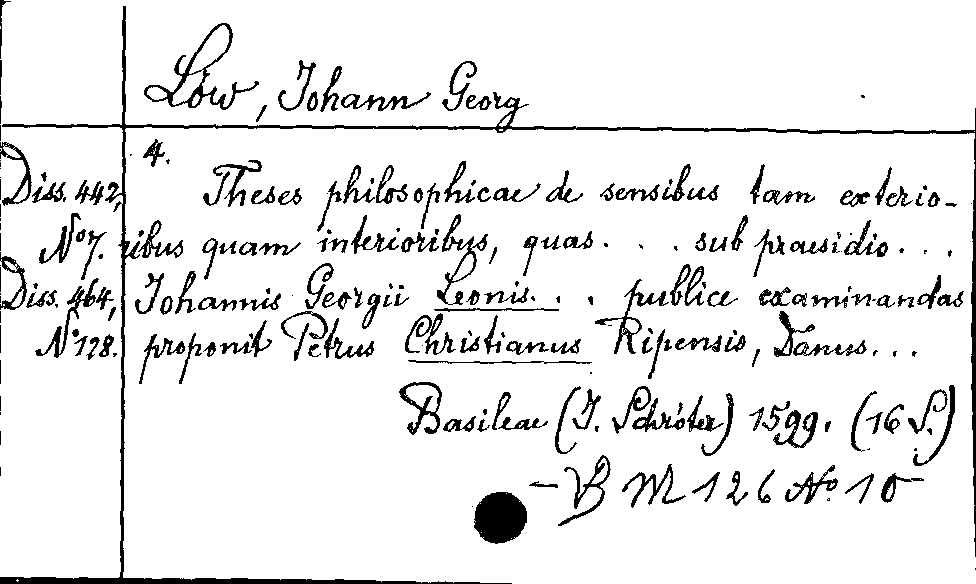 Löw, Johann Georg
4.
Diss. 442, Theses philosophicae de sensibus tam exterio-
No 7. ribus quam interioribus, quas . . . sub praesidio . . .
Diss. 464, Johannis Georgii Leonis . . . publice examinandas
No 128. proponit Petrus Christianus Ripensis, Danus . . .
Basileae (J. Schröter) 1599. (16 S.)
– VB M 126 No 10